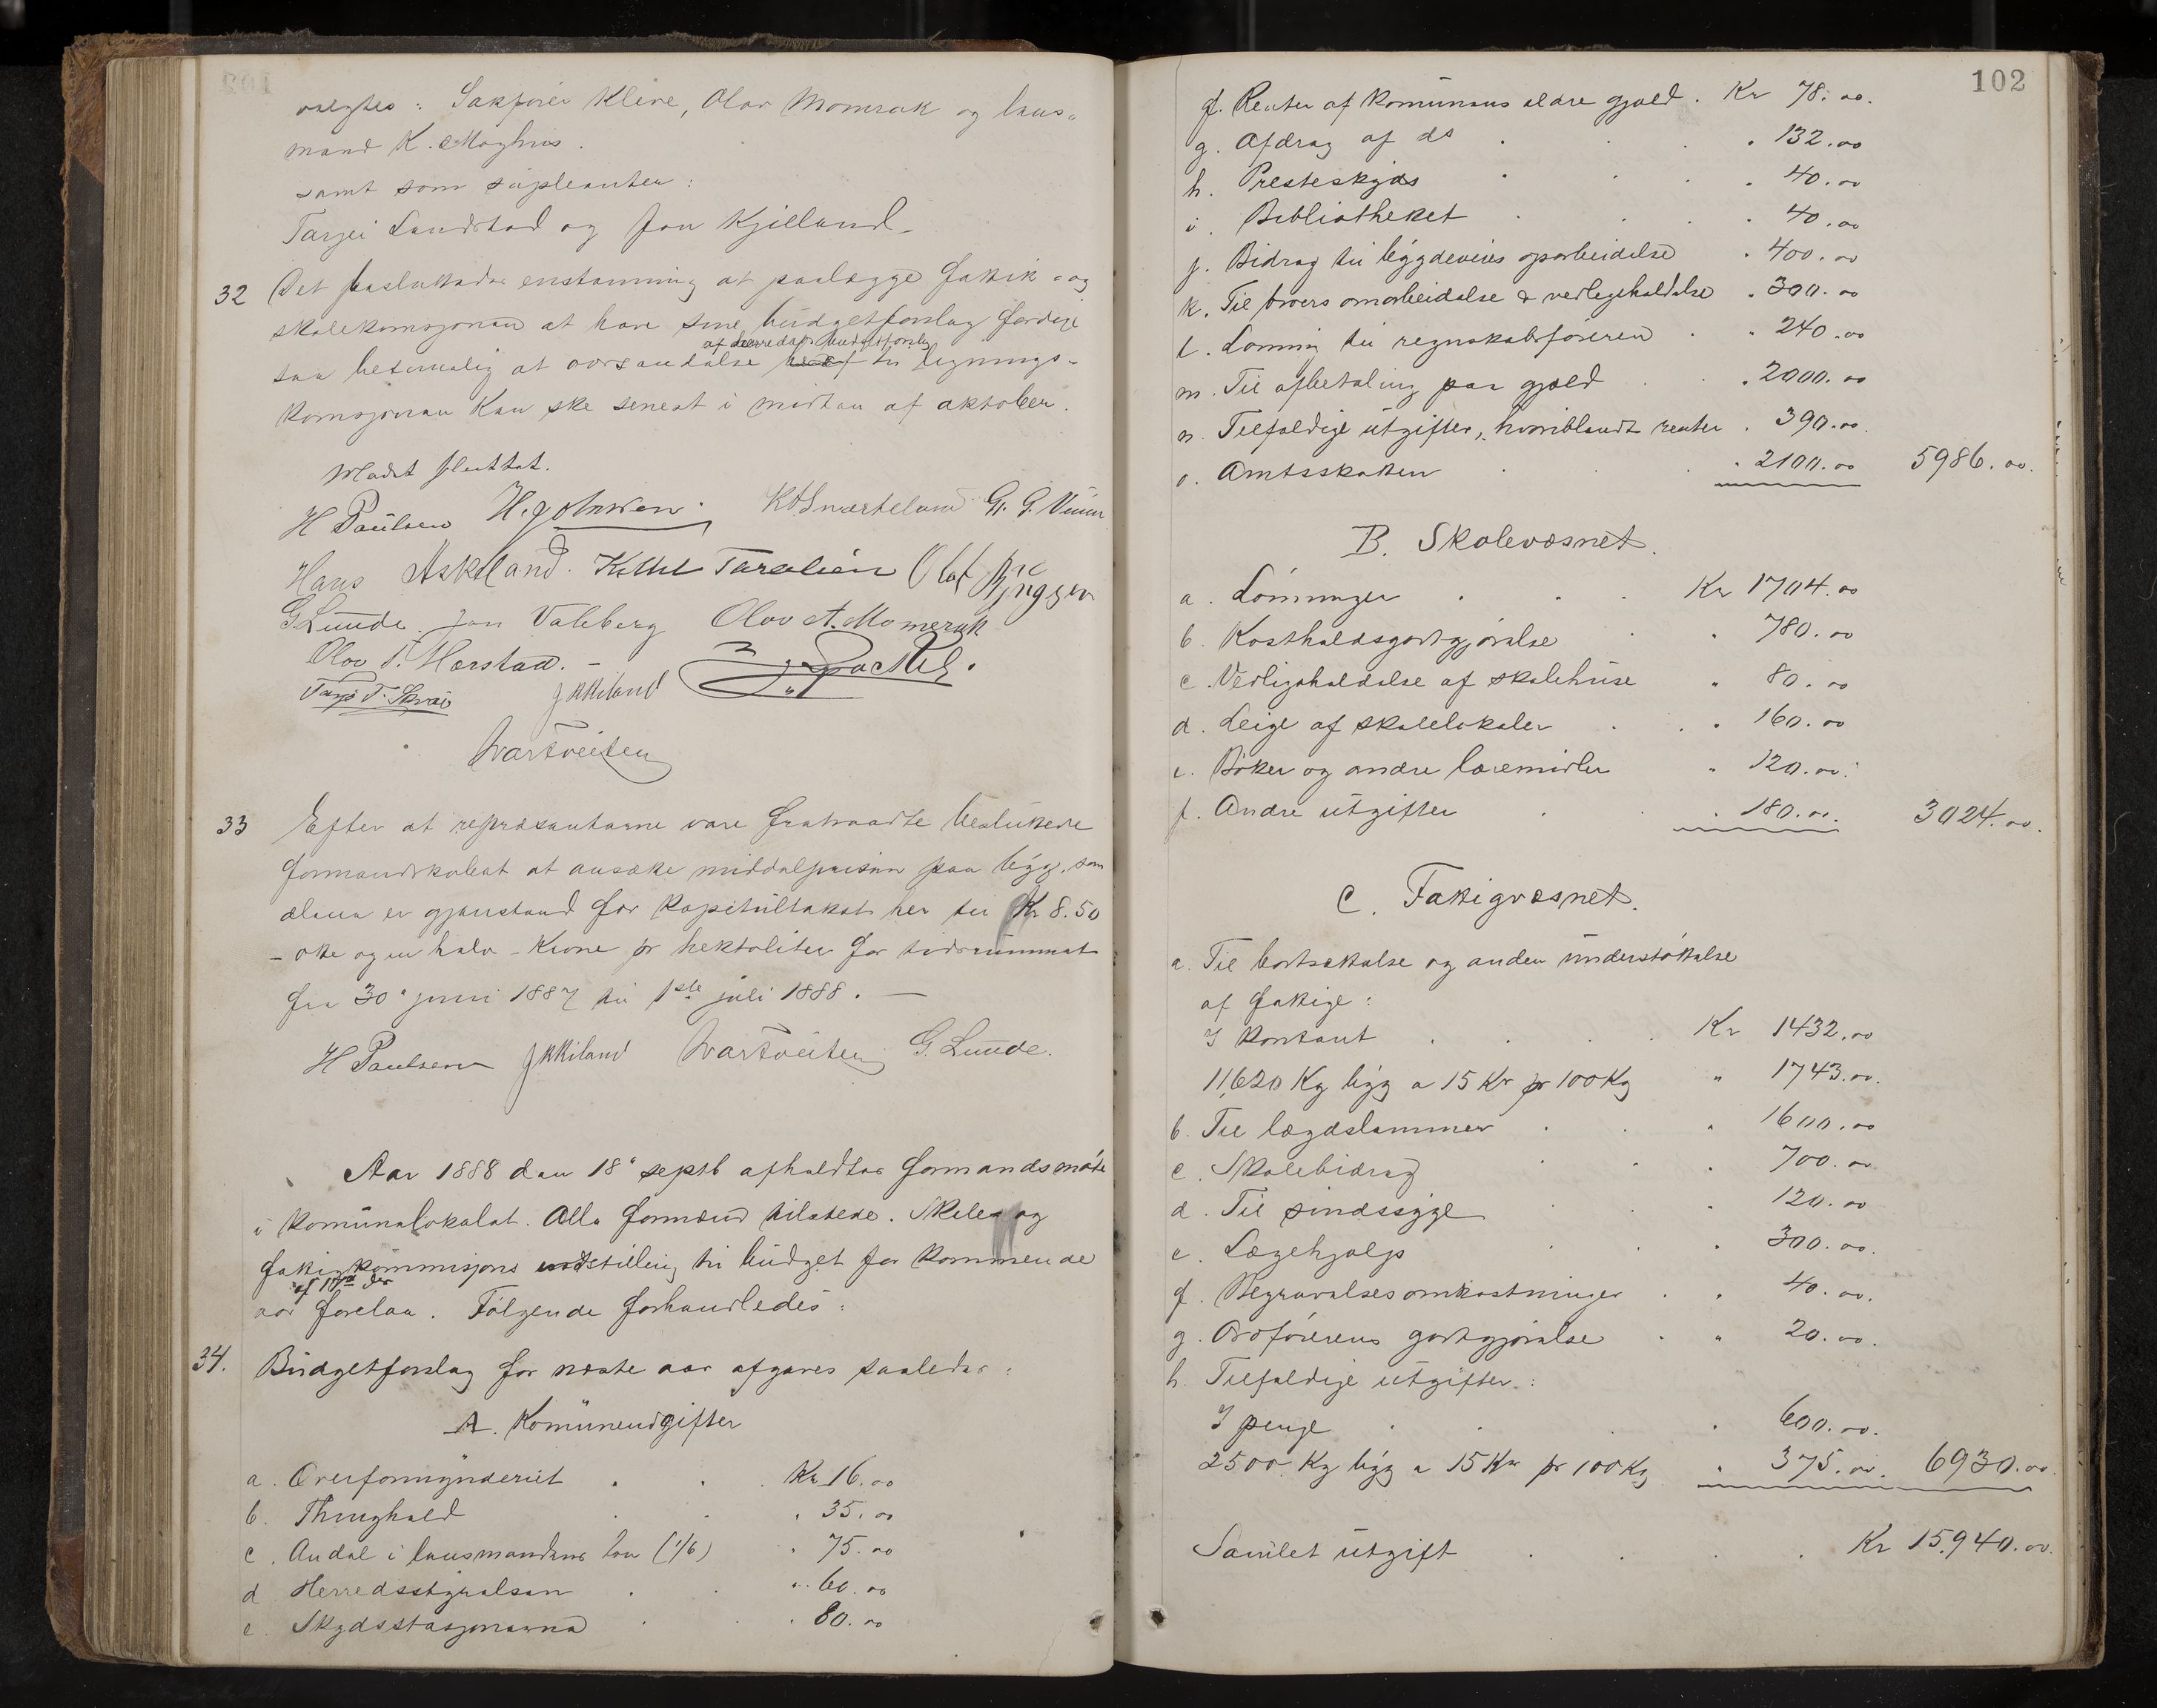 valgtes: Sakførér Kleve, Olav Momrak og lens-
mand K. Moghus.
samt som supleanter:
Tarjei Landstad og Jon Kjilland.
32 Det besluttedes enstemmig at paalægge fattik- og
skolekomsjonen at have sine budgetforslag færdige
af herredets budgetforslag
saa betimelig at oversendelse til lignings-
komsjonen kan ske senest i midten af oktober.
Mødet sluttet.
H Paulsen H. Johnsen. G. G. Vinn
Hans Askeland. Kittil Taralien Olaf
G. Lunde. Jon Valeberg Olav A. Momrak
Olav T. Hørstad.
Tarje T. Skræi J K Kiland
Tvartveiten
33 Efter at repræsentanterne vare fratraadte besluttede
formandskabet at ansætte middelprisen paa bygg, som
avlerne er gjenstand for kapitultakst her til Kr 8.50
– otte og en halv – Krone pr hektoliter for tidsrummet
fra 30 juni 1887 til 1ste juli 1888. —
H Paulsen J K Kiland Tvartveiten G. Lunde.
Aar 1888 den 18 septb afholdtes formandsmøte
i komunelokalet. Alle formænd tilstede. Skole og
fattigkommisjons indstilling til budget for kommende
af 17de ds
aar forelaa. Følgende forhandledes:
34. Budgetforslag for næste aar afgaves saaledes:
A. Komüneudgifter
a. Overformynderiet . . Kr 16.00
b. Thinghold . . " 35.00
c. Andel i lensmandens løn (1/6) " 75.00
d Herredsstyrelsen . . " 60.00
e. Skydsstasjonerne . . " 80.00
102
f. Renter af komunens ældre gjæld . Kr 78.00.
g. Afdrag af ds . . . " 132.00
h. Presteskyds . . . " 40.00
i. Bibliotheket . . . " 40.00
j. Bidrag til bygdeveies oparbeidelse " 400.00
k. Til tværs omarbeidelse & vedligeholdelse " 300.00
l. Lønning til regnskabsføreren . " 240.00
m. Til afbetaling paa gjæld . . " 2000.00
n. Tilfældige utgifter, hvoriblandt renter . 390.00.
o. Amtsskatten . . " 2100.00 5986.00.
B. Skolevæsnet.
a. Lønninger . . . Kr 1704.00
b. Kostholdsgodtgjørelse . " 780.00
c. Vedligeholdelse af skolehuse " 80.00
d. Leige af skolelokaler . . " 160.00
e. Bøker og andre læremidler " 120.00.
f. Andre utgifter . . " 180.00. 3024.00.
C. Fattigvæsnet.
a. Til bortsættelse og anden understøttelse
af fattige:
I kontant . . . Kr 1432.00
11,620 Kg bygg a 15 Kr pr 100 Kg " 1743.00.
b. Til lægdslemmer . . " 1600.00
c. Skolebidrag . . " 700.00
d. Til sindssyge . . " 120.00
e. Lægehjælp . . " 300.00.
f. Begravelsesomkostninger . " 40.00.
g. Ordførerens godtgjørelse . " 20.00.
h. Tilfældige utgifter:
I penge . . . " 600.00.
2500 Kg bygg a 15 Kr pr 100 Kg " 375.00. 6930.00.
Samlet utgift . . . . Kr 15,940.00.